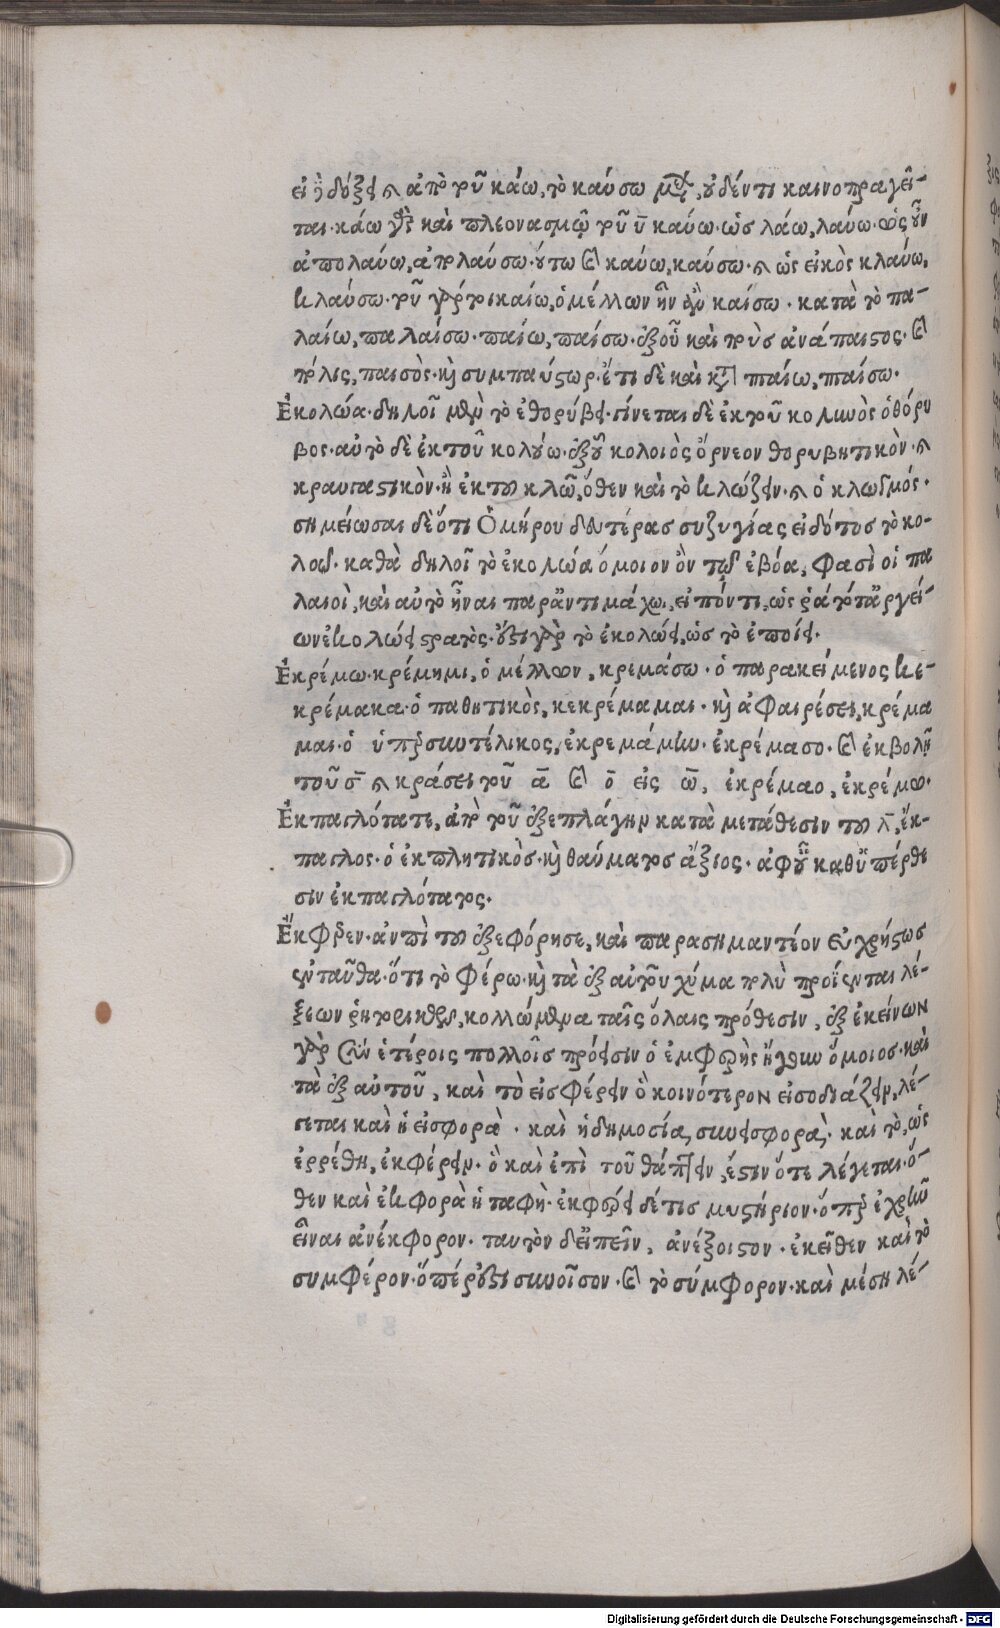 εἰ ἢ δόξει ἀπὸ τοῦ κάω, τὸ καύσω οὐδέν τι καινοπραγεῖ-
ται. κάω γὰρ καὶ πλεονασμῷ τοῦ ῡ καύω. ὡς λάω, λαύω. ὡς οὖν
ἀπολαύω, ἀπολαύσω. οὕτω καὶ καύω, καύσω. καὶ ὡς εἰκὸς κλαύω,
κλαύσω. τοῦ γάρ τοι καίω, ὁ μέλλων ἦν ἂν καίσω. κατὰ τὸ πα-
λαίω, παλαίσω. παίω, παίσω. ἐξ οὗ καὶ ποὺσ ἀνάπαιστος. καὶ
πόλις, παιστὸς. καὶ συμπαύστωρ. ἔτι δὲ καὶ πταίω, πταίσω.
Ἐκολώα. δηλοῖ μὲν τὸ ἐθορύβει. γίνεται δὲ ἐκ τοῦ κολωὸς ὁ θόρυ
βος. αὐτὸ δὲ ἐκ τοῦ κολούω. ἐξ οὗ κολοιὸς ὄρνεον θορυβητικὸν. καὶ
κραυγαστικὸν. ἢ ἐκ τοῦ κλῶ, ὅθεν καὶ τὸ κλώζειν. καὶ ὁ κλωσμός.
σημείωσαι δὲ ὅτι Ὁμήρου δευτέρασ συζυγίας εἰδότος τὸ κο-
λωῶ. καθὰ δηλοῖ τὸ ἐκολώα ὅμοιον ὂν τῷ ἐβόα, φασὶ οἱ πα
λαιοὶ, καὶ αὐτὸ εἶναι παρ' ἀντιμάχω, εἰπόντι, ὡς ῥά τότ' ἀργεί-
ων ἐκολώει στρατὸς. ἔστι γὰρ τὸ ἐκολώει, ὡσ τὸ ἐποίει.
Ἐκρέμω. κρέμημι, ὁ μέλλων, κρεμάσω. ὁ παρακείμενος κε-
κρέμακα. ὁ παθητικὸς, κεκρέμαμαι. καὶ ἀφαιρέσει, κρέμα
μαι. ὁ ὑπερσυντέλικος, ἐκρεμάμην. ἐκρέμασο. καὶ ἐκβολῇ
τοῦ σ̄ καὶ κράσει τοῦ ᾱ καὶ ο̄ εἰς ω̄, ἐκρέμαο, ἐκρέμω.
Ἐκπαγλότατε, ἀπὸ τοῦ ἐξεπλάγην κατὰ μετάθεσιν τοῦ λ̄, ἔκ-
παγλος. ὁ ἐκπλητικὸς. καὶ θαύματος ἄξιος. ἀφ' οὗ καθ' ὑπέρθε
σιν ἐκπαγλότατος.
Ἔκφρεν. ἀντὶ τοῦ ἐξεφόρησε, καὶ παρασημαντέον εὐχρήστωσ
ἐνταῦθα. ὅτι τὸ φέρω. καὶ τὰ ἐξ αὐτοῦ σχήμα πολὺ προΐενται λέ-
ξεων ῥητορικῆς, κολλώμενα ταῖς ὅλαις πρόθεσιν, ἐξ ἐκείνων
γὰρ σὺν ἑτέροις πολλοῖς πρόεισιν ὁ ἐμφερὴς ἤγουν ὅμοιος. καὶ
τὰ ἐξ αὐτοῦ, καὶ τὸ εἰσφέρειν ὃ κοινότερον εἰσοδιάζειν, λέ-
γεται καὶ ἡ εἰσφορὰ. καὶ ἡ δημοσία, συνεισφορὰ. καὶ τὸ, ὡς
ἐρρέθη, ἐκφέρειν. ὃ καὶ ἐπὶ τοῦ θάπτειν, ἔστιν ὅτε λέγεται. ὅ-
θεν καὶ ἐκφορὰ ἡ ταφὴ. ἐκφέρει δέ τισ μυστήριον. ὅπερ ἐχρῆν
εἶναι ἀνέκφορον. ταυτὸν δ' εἰπεῖν, ἀνέξοιστον. ἐκεῖθεν καὶ τὸ
συμφέρον. ὅπερ ἔστι συνοῖσον. καὶ τὸ σύμφορον. καὶ μέση λέ-
Digitalisierung gefördert durch die Deutsche Forschungsgemeinschaft - DFG